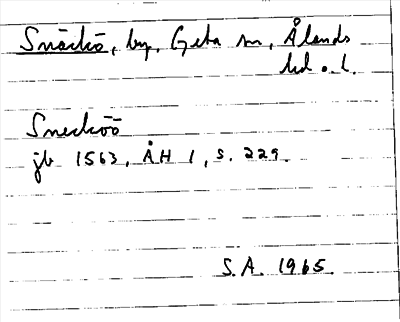 Snäckö, by, Geta sn, Ålands
hd o. l.
Snecköö
jb 1563, ÅH 1, s. 229.
S.A. 1965.